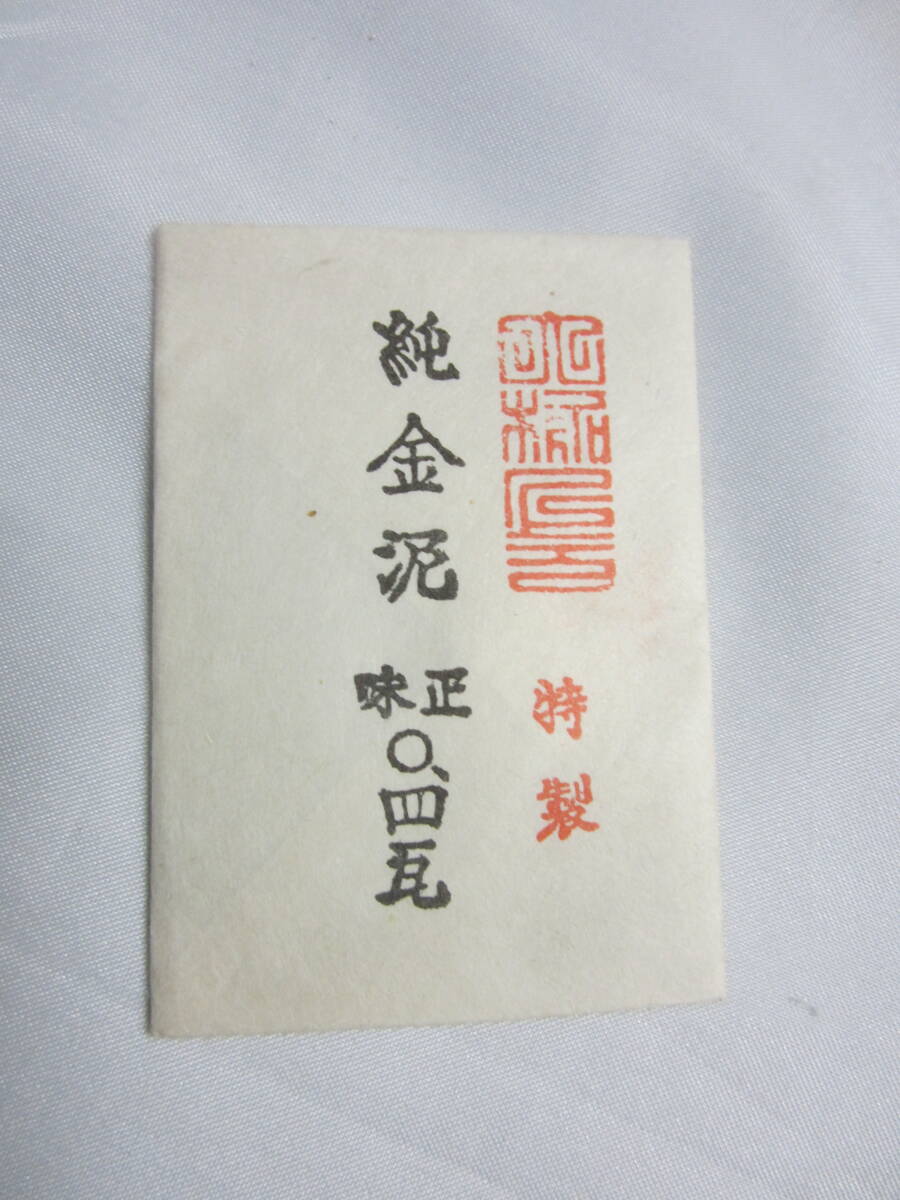 特製
純金泥
正味
〇、四瓦